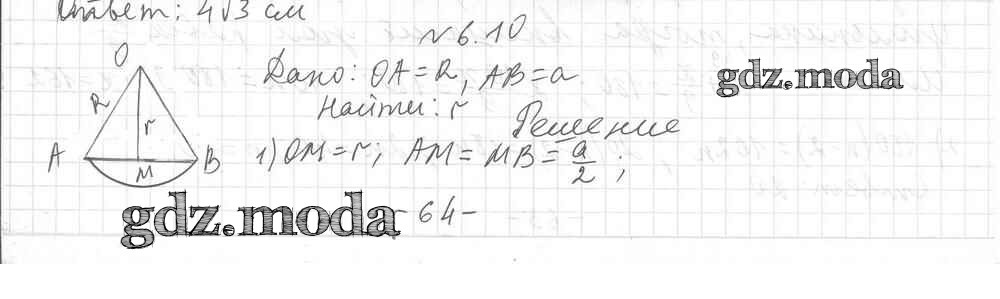 Ответ: 4√3 см
№6.10
O
Дано: OA = R, AB = a
gdz.moda
R
Найти: r
r
Решение
A
B
M
1) OM = r; AM = MB = a/2 ;
gdz.moda
- 64 -